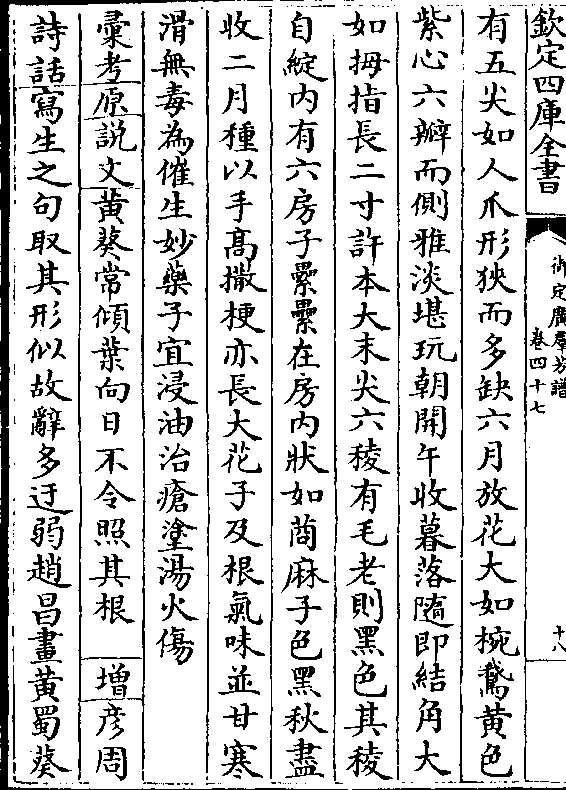 欽定四庫全書
御定廣羣芳譜
卷四十七
十八
有五尖如人爪形狹而多缺六月放花大如椀鵞黃色
紫心六瓣而側雅淡堪玩朝開午收暮落隨即結角大
如拇指長二寸許本大末尖六稜有毛老則黑色其稜
自綻内有六房子纍纍在房内狀如苘麻子色黑秋盡
收二月種以手髙撒梗亦長大花子及根氣味並甘寒
滑無毒為催生妙藥子宜浸油治瘡塗湯火傷
彚考原説文黃葵常傾葉向日不令照其根 增彦周
詩話寫生之句取其形似故辭多迂弱趙昌畫黃蜀葵